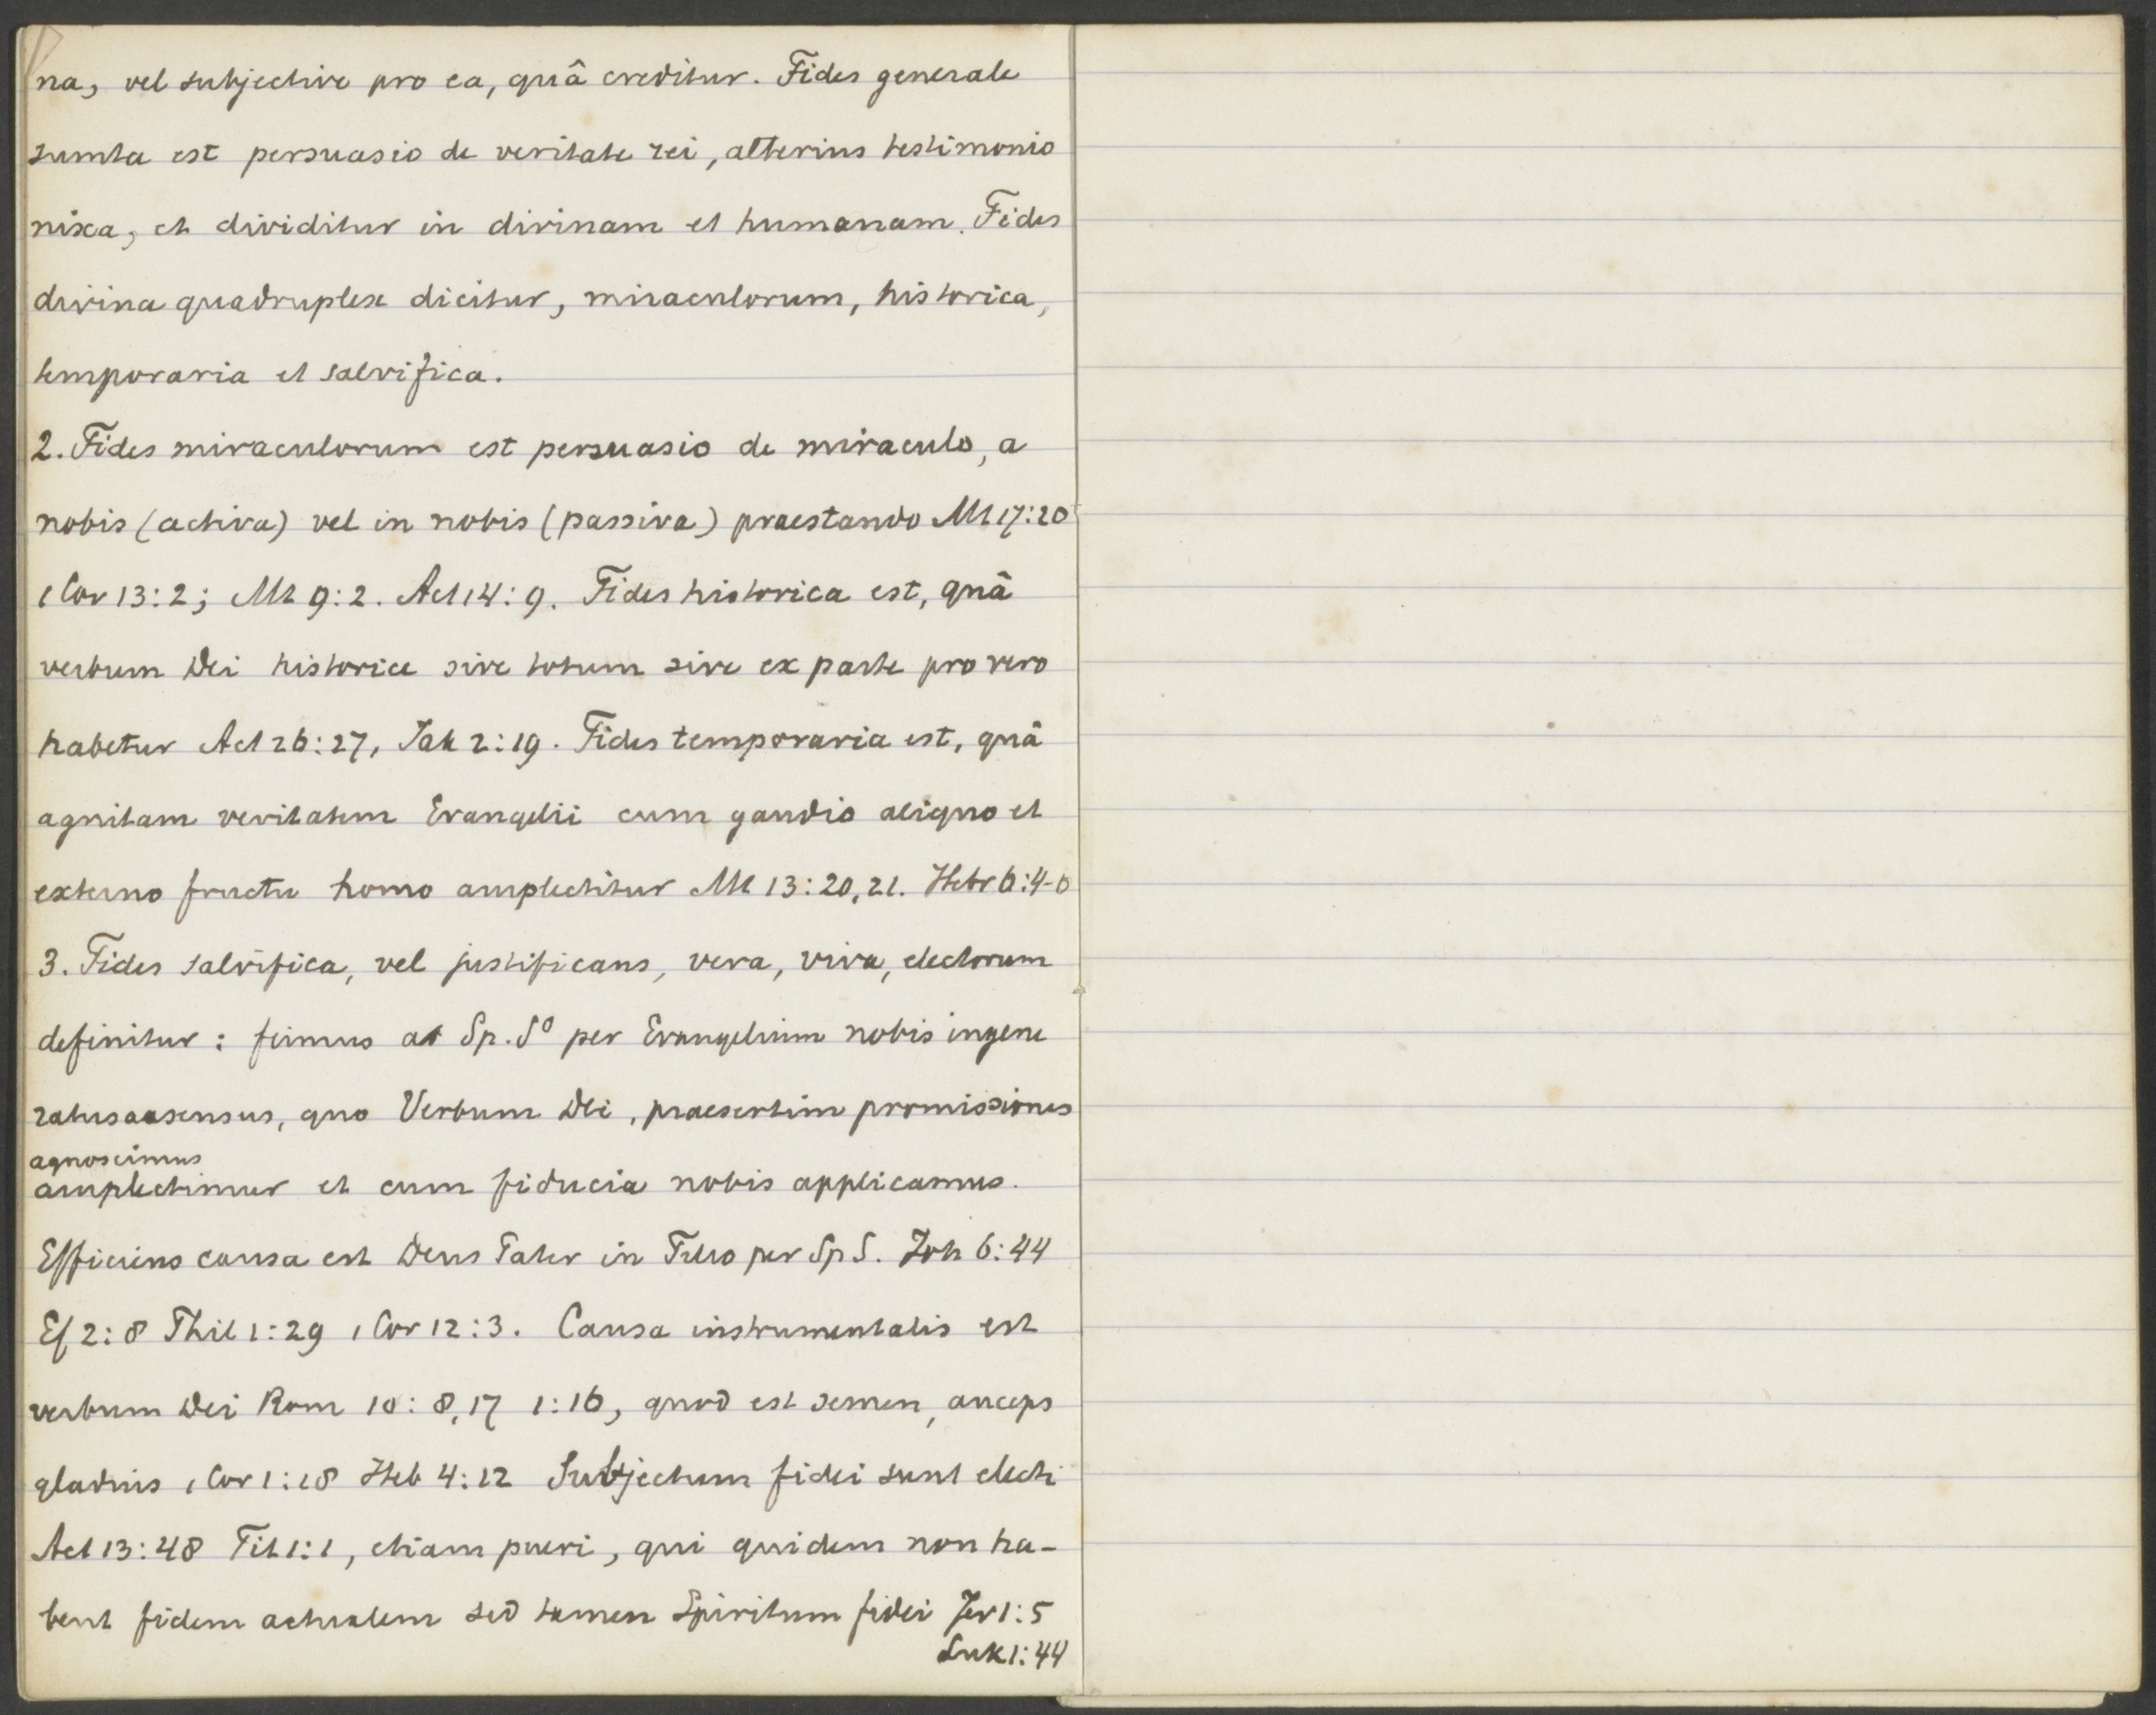 na, vel subjective pro ea, quâ creditur. Fides generale
sumta est persuasio de veritate rei, alterius testimonio
nixa, et dividitur in divinam et humanam. Fides
divina quadruplex dicitur, miraculorum, historica,
temporaria et salvifica.
2. Fides miraculorum est persuasio de miraculo, a
nobis (activa) vel in nobis (passiva) praestando Mt 17:20
1 Cor 13:2; Mt 9:2. Act 14:9. Fides historica est, quâ
verbum Dei historice sive totum sive ex parte pro vero
habetur Act 26:27, Jak 2:19. Fides temporaria est, quâ
agnitam veritatem Evangelii cum gaudio aliquo et
externo fructu homo amplectitur Mt 13:20,21. Hebr 6:4-6
3. Fides salvifica, vel justificans, vera, viva, electorum
definitur: firmus a Sp. S° per Evangelium nobis ingene
ratus assensus, quo Verbum Dei, praesertim promissiones
agnoscimus
amplectimur et cum fiducia nobis applicamus.
Efficiens causa est Deus Pater in Filio per Sp S. Joh 6:44
Ef 2:8 Phil 1:29 1 Cor 12:3. Causa instrumentalis est
verbum Dei Rom 10:8,17 1:16, quod est semen, anceps
gladius 1 Cor 1:18 Heb 4:12 Subjectum fidei sunt electi
Act 13:48 Tit 1:1, etiam pueri, qui quidem non ha-
bent fidem actualem sed tamen Spiritum fidei Jer 1:5
Luk 1:44